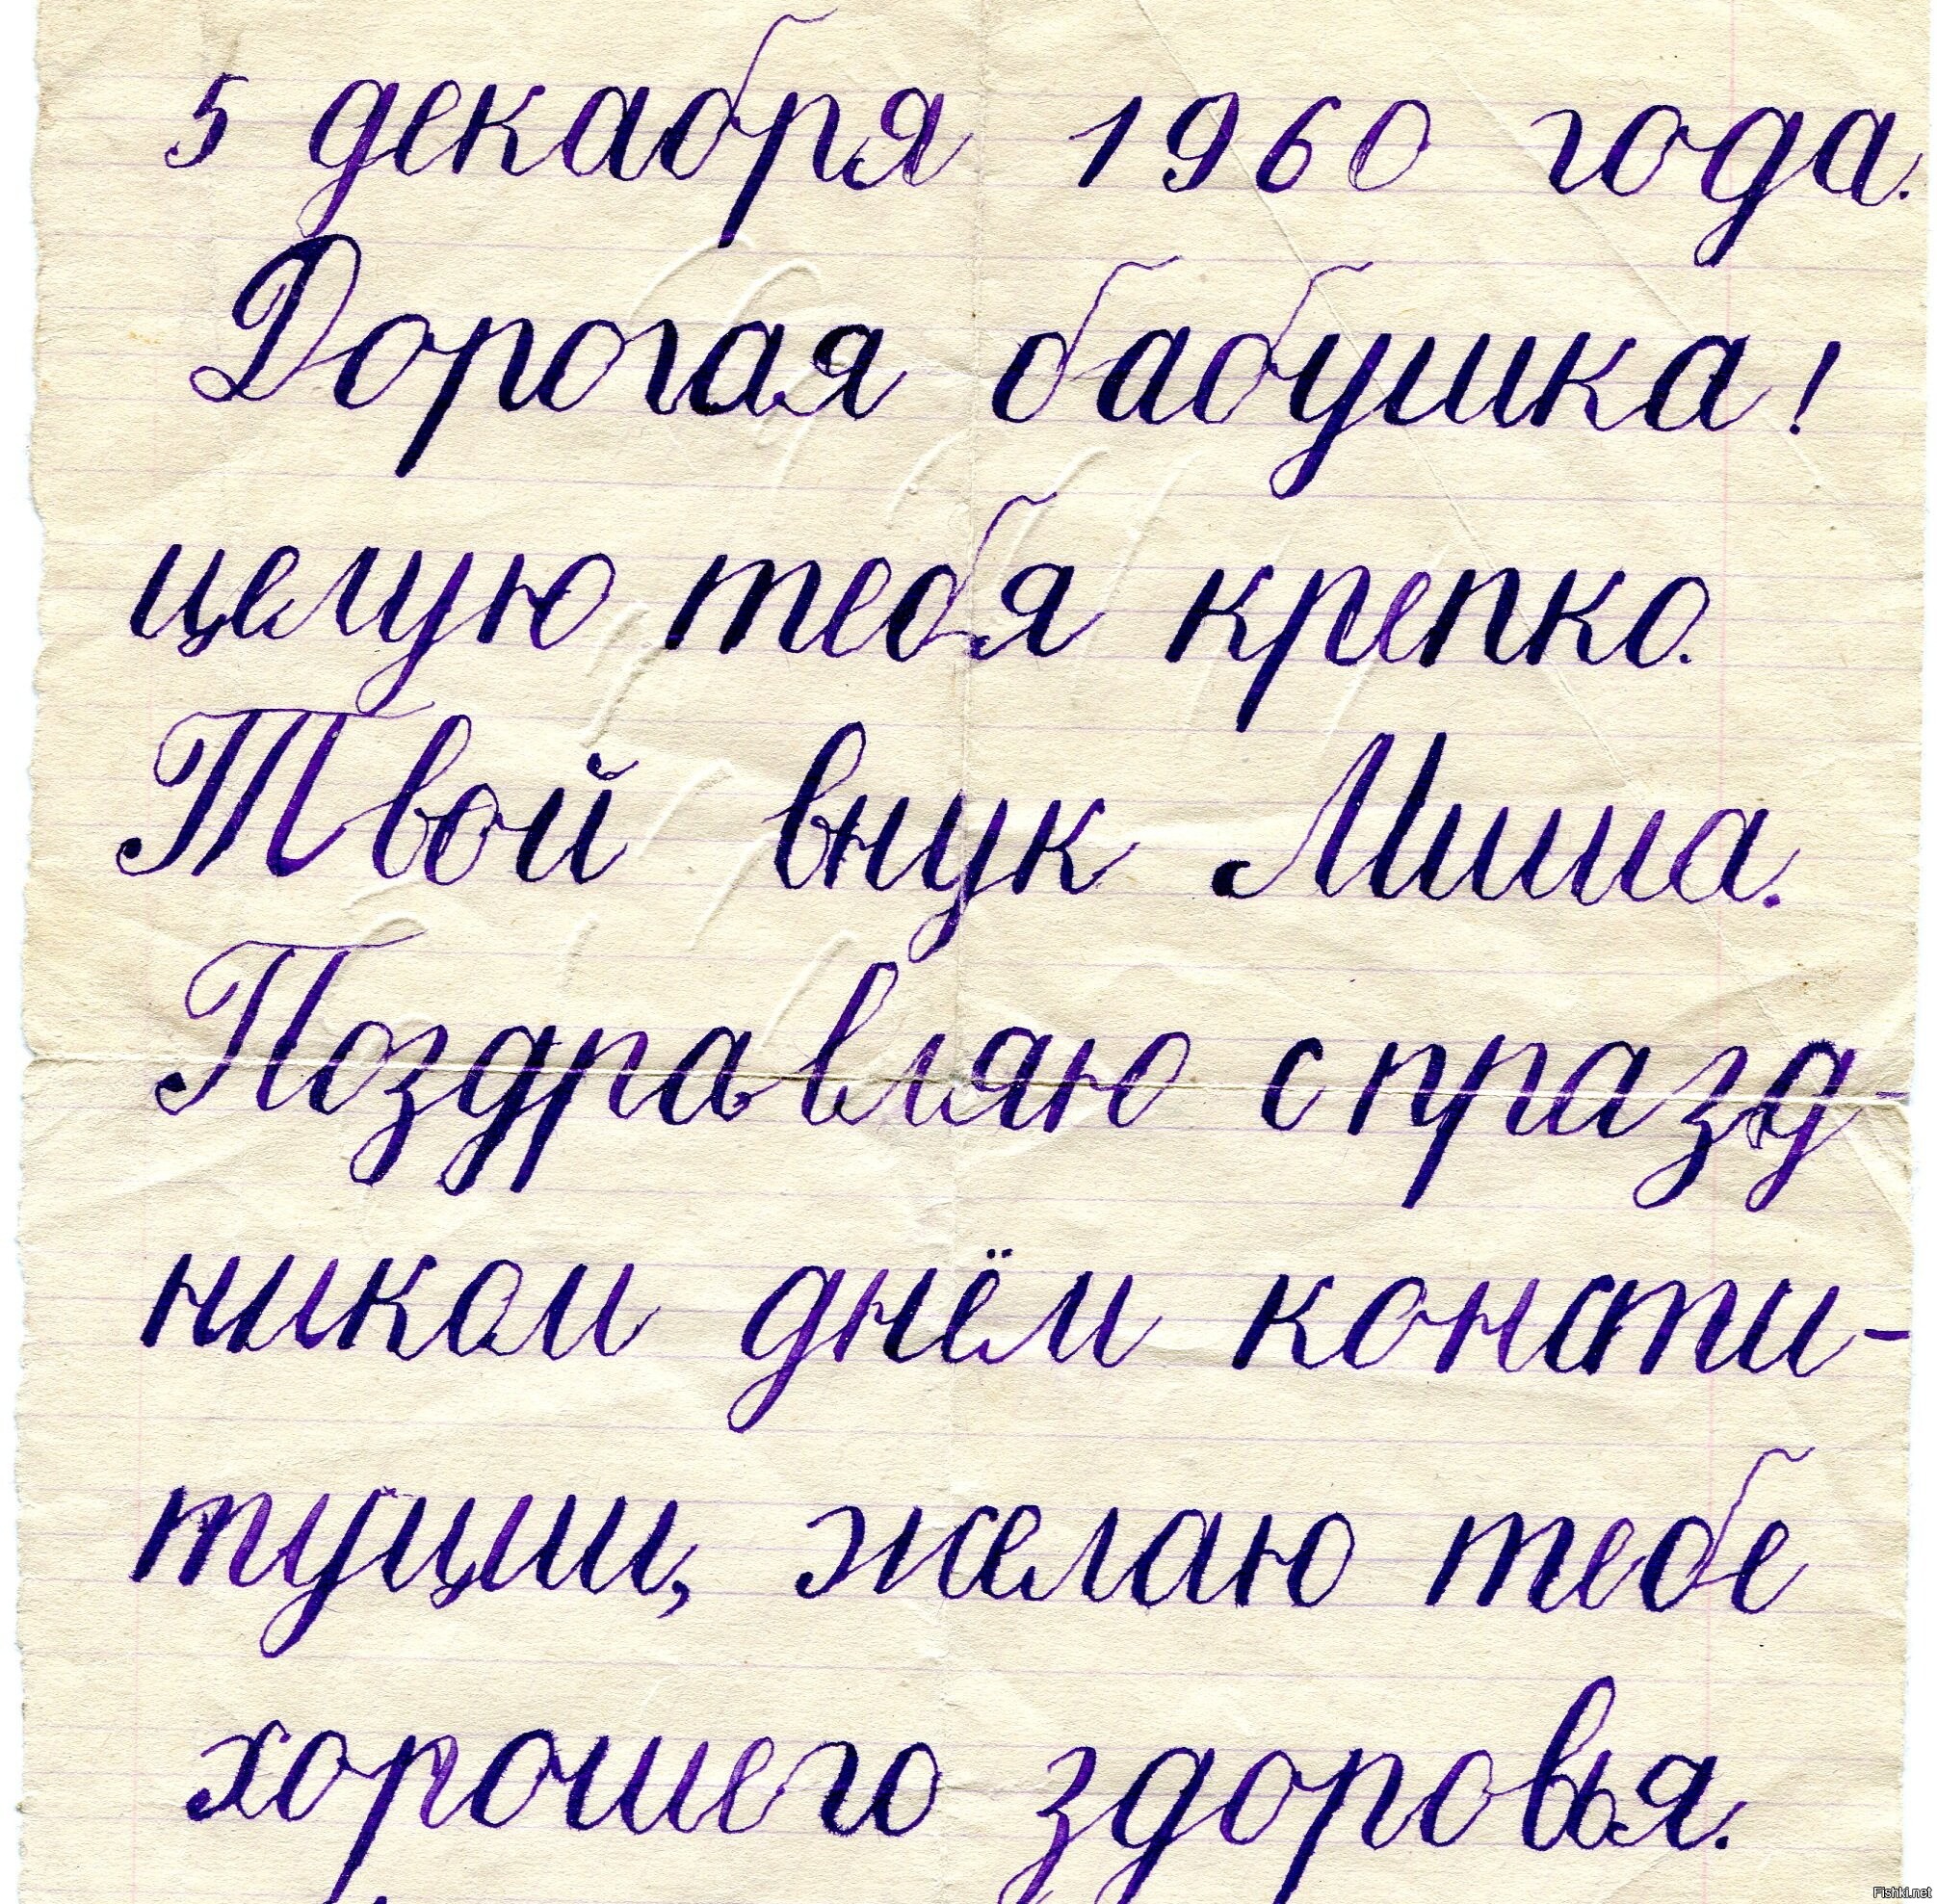 5 декабря 1960 года.
Дорогая бабушка!
целую тебя крепко.
Твой внук Миша.
Поздравляю с празд-
ником днём консти-
туции, желаю тебе
хорошего здоровья.
Fishki.net